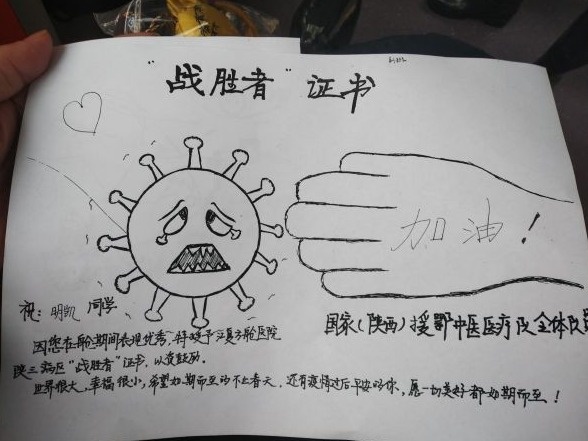 “战胜者”证书
加油！
祝：明凯 同学
国家(陕西)援鄂中医医疗队全体队员
因您在舱期间表现优秀，特授予江夏方舱医院
陕三病区“战胜者”证书，以资鼓励。
世界很大，幸福很小，希望如期而至的不止春天，还有疫情过后平安的你，愿一切美好都如期而至！